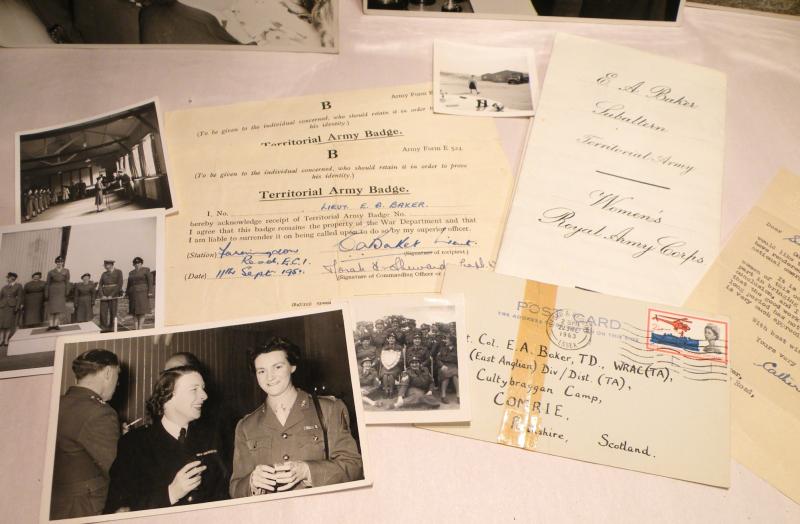 B
Army Form E
(To be given to the individual concerned, who should retain it in order to
his identity.)
Territorial Army Badge.
B
Army Form E 524.
(To be given to the individual concerned, who should retain it in order to prove
his identity.)
Territorial Army Badge.
I, No. LIEUT. E. A. BAKER.
hereby acknowledge receipt of Territorial Army Badge No.
I agree that this badge remains the property of the War Department and that
I am liable to surrender it on being called upon to do so by my superior officer.
(Station) Farringdon
Road, E.C.1.
EABaker Lieut.
(Signature of recipient.)
(Date) 11th Sept 1951.
(Signature of Commanding Officer or
E A Baker
Subaltern
Territorial Army
Women's
Royal Army Corps
POST CARD
THE ADDRESS ON THIS SIDE
1963
ESSEX
Lt. Col. E. A. Baker, TD., WRAC(TA),
(East Anglian) Div/Dist. (TA),
Cultybraggan Camp,
COMRIE,
Perthshire,
Scotland.
Dear
would like
national
of this
conclusion
With best wi
Yours very
Road,